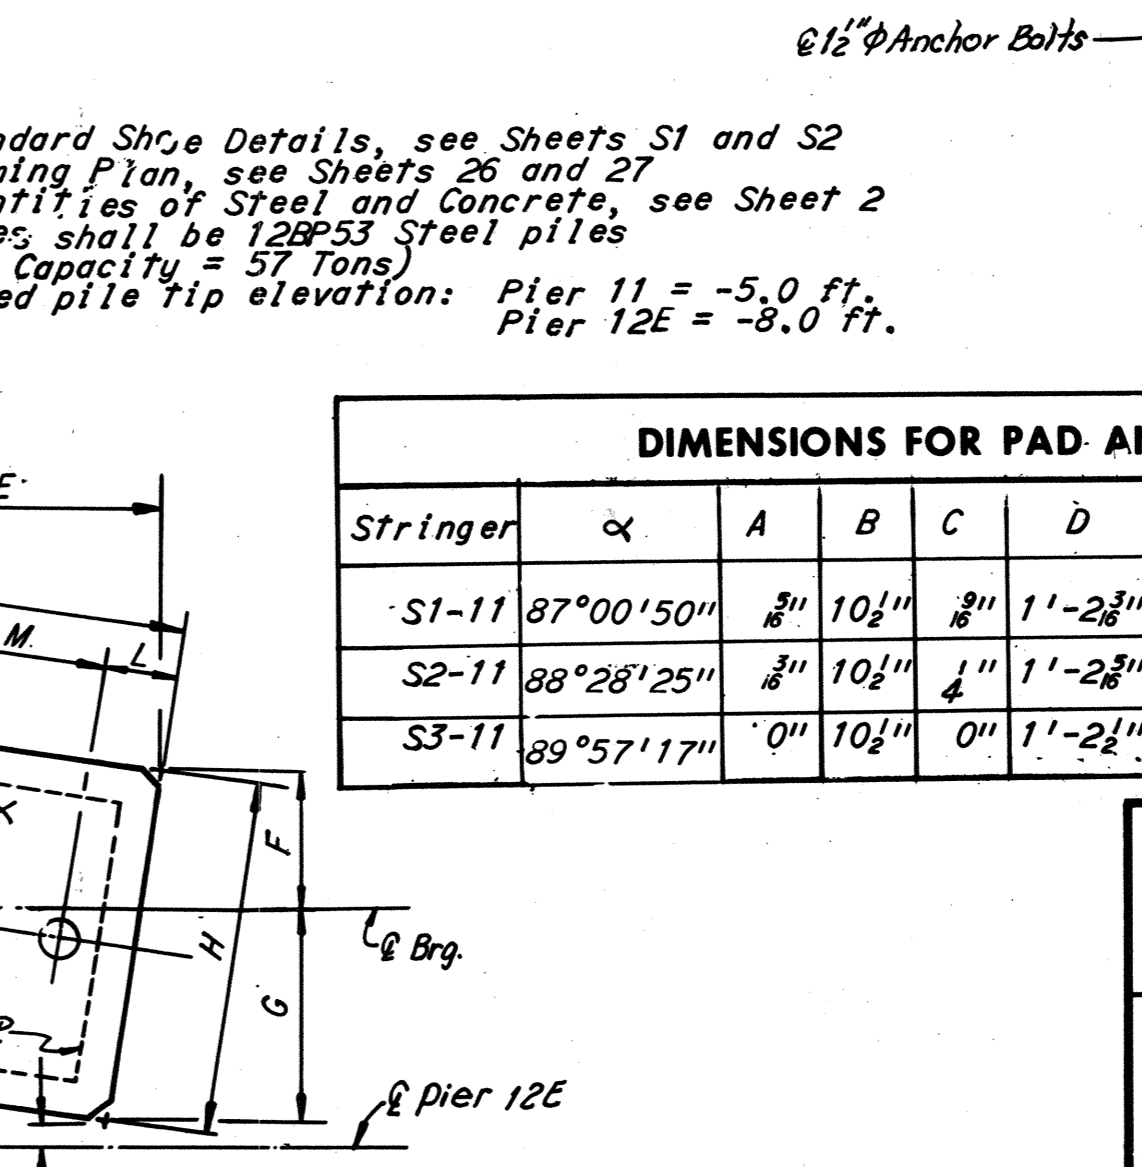 ℄ 1½"φ Anchor Bolts
Shoe Details, see Sheets S1 and S2
Plan, see Sheets 26 and 27
of Steel and Concrete, see Sheet 2
shall be 12BP53 Steel piles
Capacity = 57 Tons)
pile tip elevation: Pier 11 = -5.0 ft.
Pier 12E = -8.0 ft.
DIMENSIONS FOR PAD
Stringer α A B C D
S1-11 87°00'50" 5/16" 10½" 9/16" 1'-2 3/16"
S2-11 88°28'25" 3/16" 10½" ¼" 1'-2 5/16"
S3-11 89°57'17" 0" 10½" 0" 1'-2½"
E
M
L
F
H
G
℄ Brg.
℄ Pier 12E